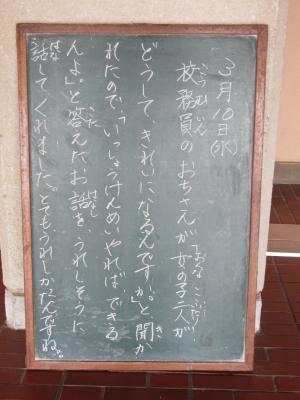 3月10日(水)
校務員のおぢさんが女の子二人が
どうして、きれいになるんですか。」と聞か
れたので、「いっしょうけんめいやればできる
んよ」と答えたお話を、うれしそうに
話してくれました。とてもうれしかたんですね。